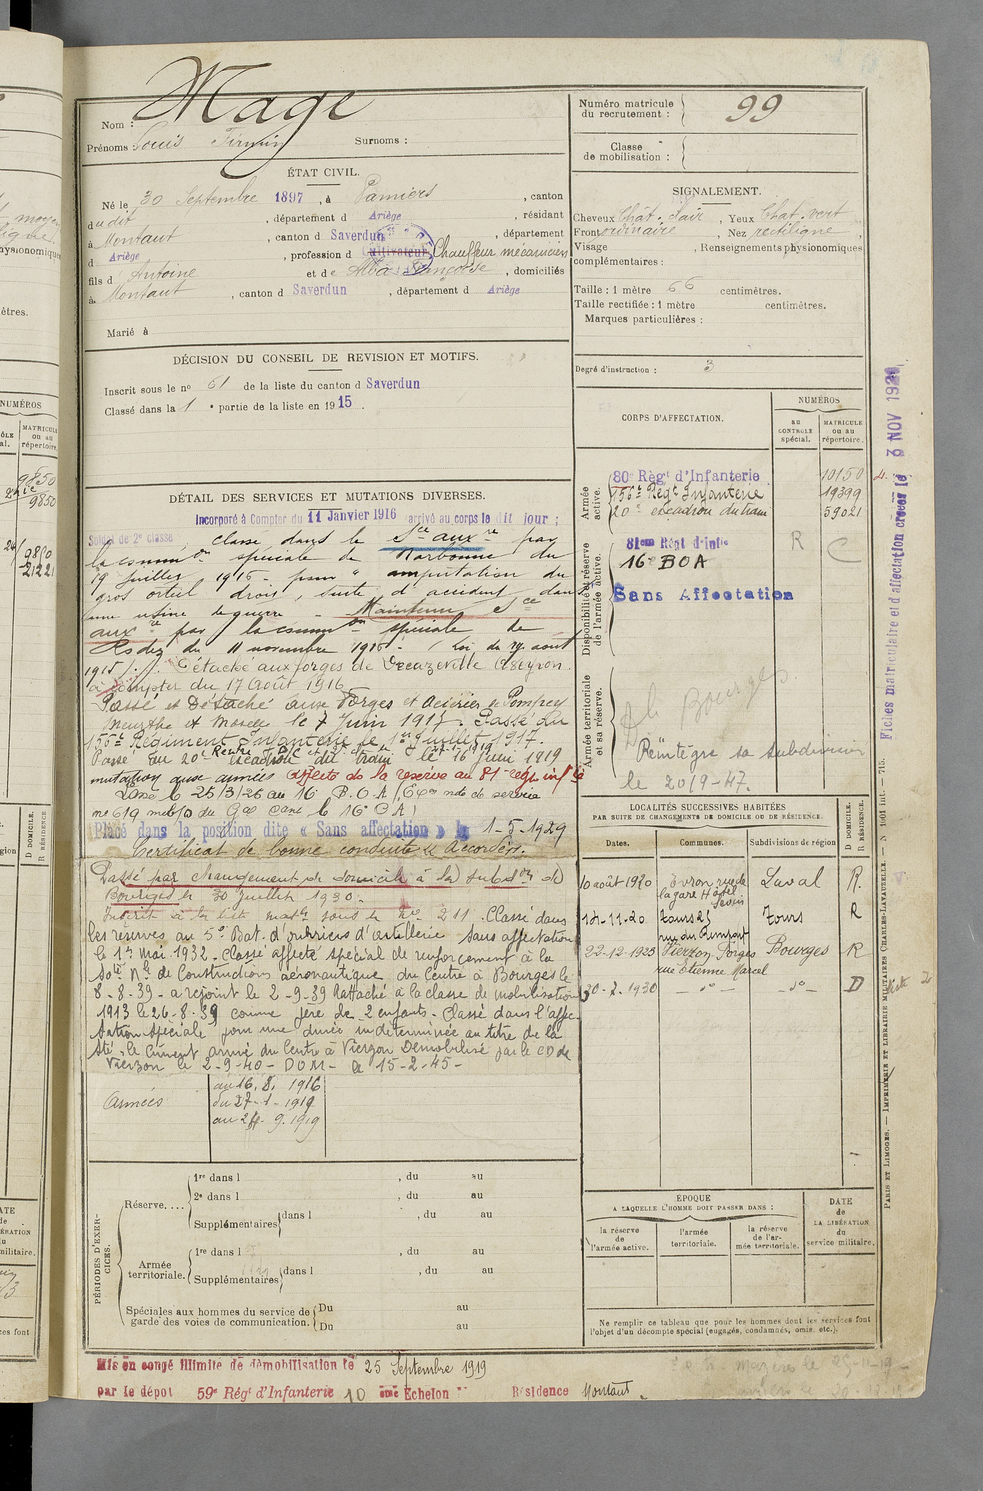 Mage
Nom :
Prénoms : Louis Firmin Surnoms :
ÉTAT CIVIL.
Né le 30 Septembre 1897, à Pamiers, canton
dudit, département d Ariège, résidant
à Montaut, canton d Saverdun, département
d Ariège, profession d Cultivateur Chauffeur mécanicien
fils d' Antoine et de Françoise, domiciliés
à Montaut, canton d Saverdun, département d Ariège
Marié à
DÉCISION DU CONSEIL DE REVISION ET MOTIFS.
Inscrit sous le no 61 de la liste du canton d Saverdun
Classé dans la 1 e partie de la liste en 1915.
DÉTAIL DES SERVICES ET MUTATIONS DIVERSES.
Incorporé à Compter du 11 Janvier 1916 arrivé au corps le dit jour ;
Soldat de 2e classe Classé dans le Sce auxre par
la common spéciale de Narbonne du
19 juillet 1916 - pour " amputation du
gros orteil droit, suite d'accident dans
une usine de guerre - Maintenu Sce
auxre par la common spéciale de
Rodez du 11 novembre 1916 - (loi du 17 août
1915). Détaché aux forges de Decazeville Aveyron
à compter du 17 Août 1916
Passé et Détaché aux Forges et Aciéries de Pompey
Meurthe et Moselle le 7 Juin 1917. Passé du
156e Régiment Infanterie le 1er Juillet 1917.
Passé au 20e escadron du train le 16 Juin 1919
mutation aux armées Affecté de la réserve au 81e régt infie
Passé le 25/3/26 au 16 B.O.A.
no 619 mob/o du Gal Comt le 16e CA)
Placé dans la position dite « Sans affectation » le 1-5-1929
Certificat de bonne conduite Accordé.
Passé par changement de domicile à la subdon de
Bourges le 30 juillet 1930.
Inscrit à la liste matle sous le No 211. Classé dans
les réserves au 5e Bat. d'ouvriers d'artillerie sans affectation
le 1er Mai 1932. Classé affecté spécial de renforcement à la
Sté Nle de Constructions aéronautique du Centre à Bourges le
8-8-39 - a rejoint le 2-9-39 Rattaché à la classe de mobilisation
1913 le 26-8-39 comme père de 2 enfants. Classé dans l'affec-
tation spéciale, pour une durée indéterminée au titre de la
Sté à Vierzon Démobilisé par le CD de
Vierzon le 2-9-40 - DOM - le 15-2-45 -
Armées
au 16. 8. 1916
du 27-1-1919
au 24-9-1919
PÉRIODES D'EXERCICES.
Réserve....
1re dans l , du au
2e dans l , du au
Supplémentaires dans l , du au
Armée territoriale.
1re dans l , du au
Supplémentaires dans l , du au
Spéciales aux hommes du service de garde des voies de communication.
Du au
Du au
Mis en congé illimité de démobilisation le 25 Septembre 1919
par le dépot 59e Régt d'Infanterie 10 ème Echelon Résidence Montaut
Numéro matricule du recrutement : 99
Classe de mobilisation :
SIGNALEMENT.
Cheveux Chât. clair, Yeux Chat. vert
Front ordinaire, Nez rectiligne,
Visage , Renseignements physionomiques
complémentaires :
Taille : 1 mètre 66 centimètres.
Taille rectifiée : 1 mètre centimètres.
Marques particulières :
Degré d'instruction : 3
CORPS D'AFFECTATION.
NUMÉROS
au CONTRÔLE spécial.
MATRICULE ou au répertoire.
Armée active.
80e Régt d'Infanterie 10150
156e Régt Infanterie 19399
20e escadron du train 59021
Disponibilité et réserve de l'armée active.
81em Régt d'infie R C
16e BOA
Sans Affectation
Armée territoriale et sa réserve.
Bourges
Réintègre sa subdivision
le 20/9-47.
LOCALITÉS SUCCESSIVES HABITÉES
PAR SUITE DE CHANGEMENTS DE DOMICILE OU DE RÉSIDENCE.
Dates. Communes. Subdivisions de région
D DOMICILE. R RÉSIDENCE.
10 août 1920 Evron rue de la gare Hôtel Laval R.
14-11-20 Tours Tours R
22-12-1925 Vierzon Forges rue Etienne Marcel Bourges R
30-7-1930 - do - - do - D
ÉPOQUE
A LAQUELLE L'HOMME DOIT PASSER DANS :
la réserve de l'armée active.
l'armée territoriale.
la réserve de l'armée territoriale.
DATE de LA LIBÉRATION du service militaire.
Ne remplir ce tableau que pour les hommes dont les services font
l'objet d'un décompte spécial (engagés, condamnés, omis, etc.).
Fiches matriculaire et d'affectation créées le 3 NOV 192
PARIS ET LIMOGES. — IMPRIMERIE ET LIBRAIRIE MILITAIRES CHARLES-LAVAUZELLE. — N° 1001 int. — 715.
NUMÉROS
MATRICULE ou au répertoire.
9850
9850
D DOMICILE.
R RÉSIDENCE.